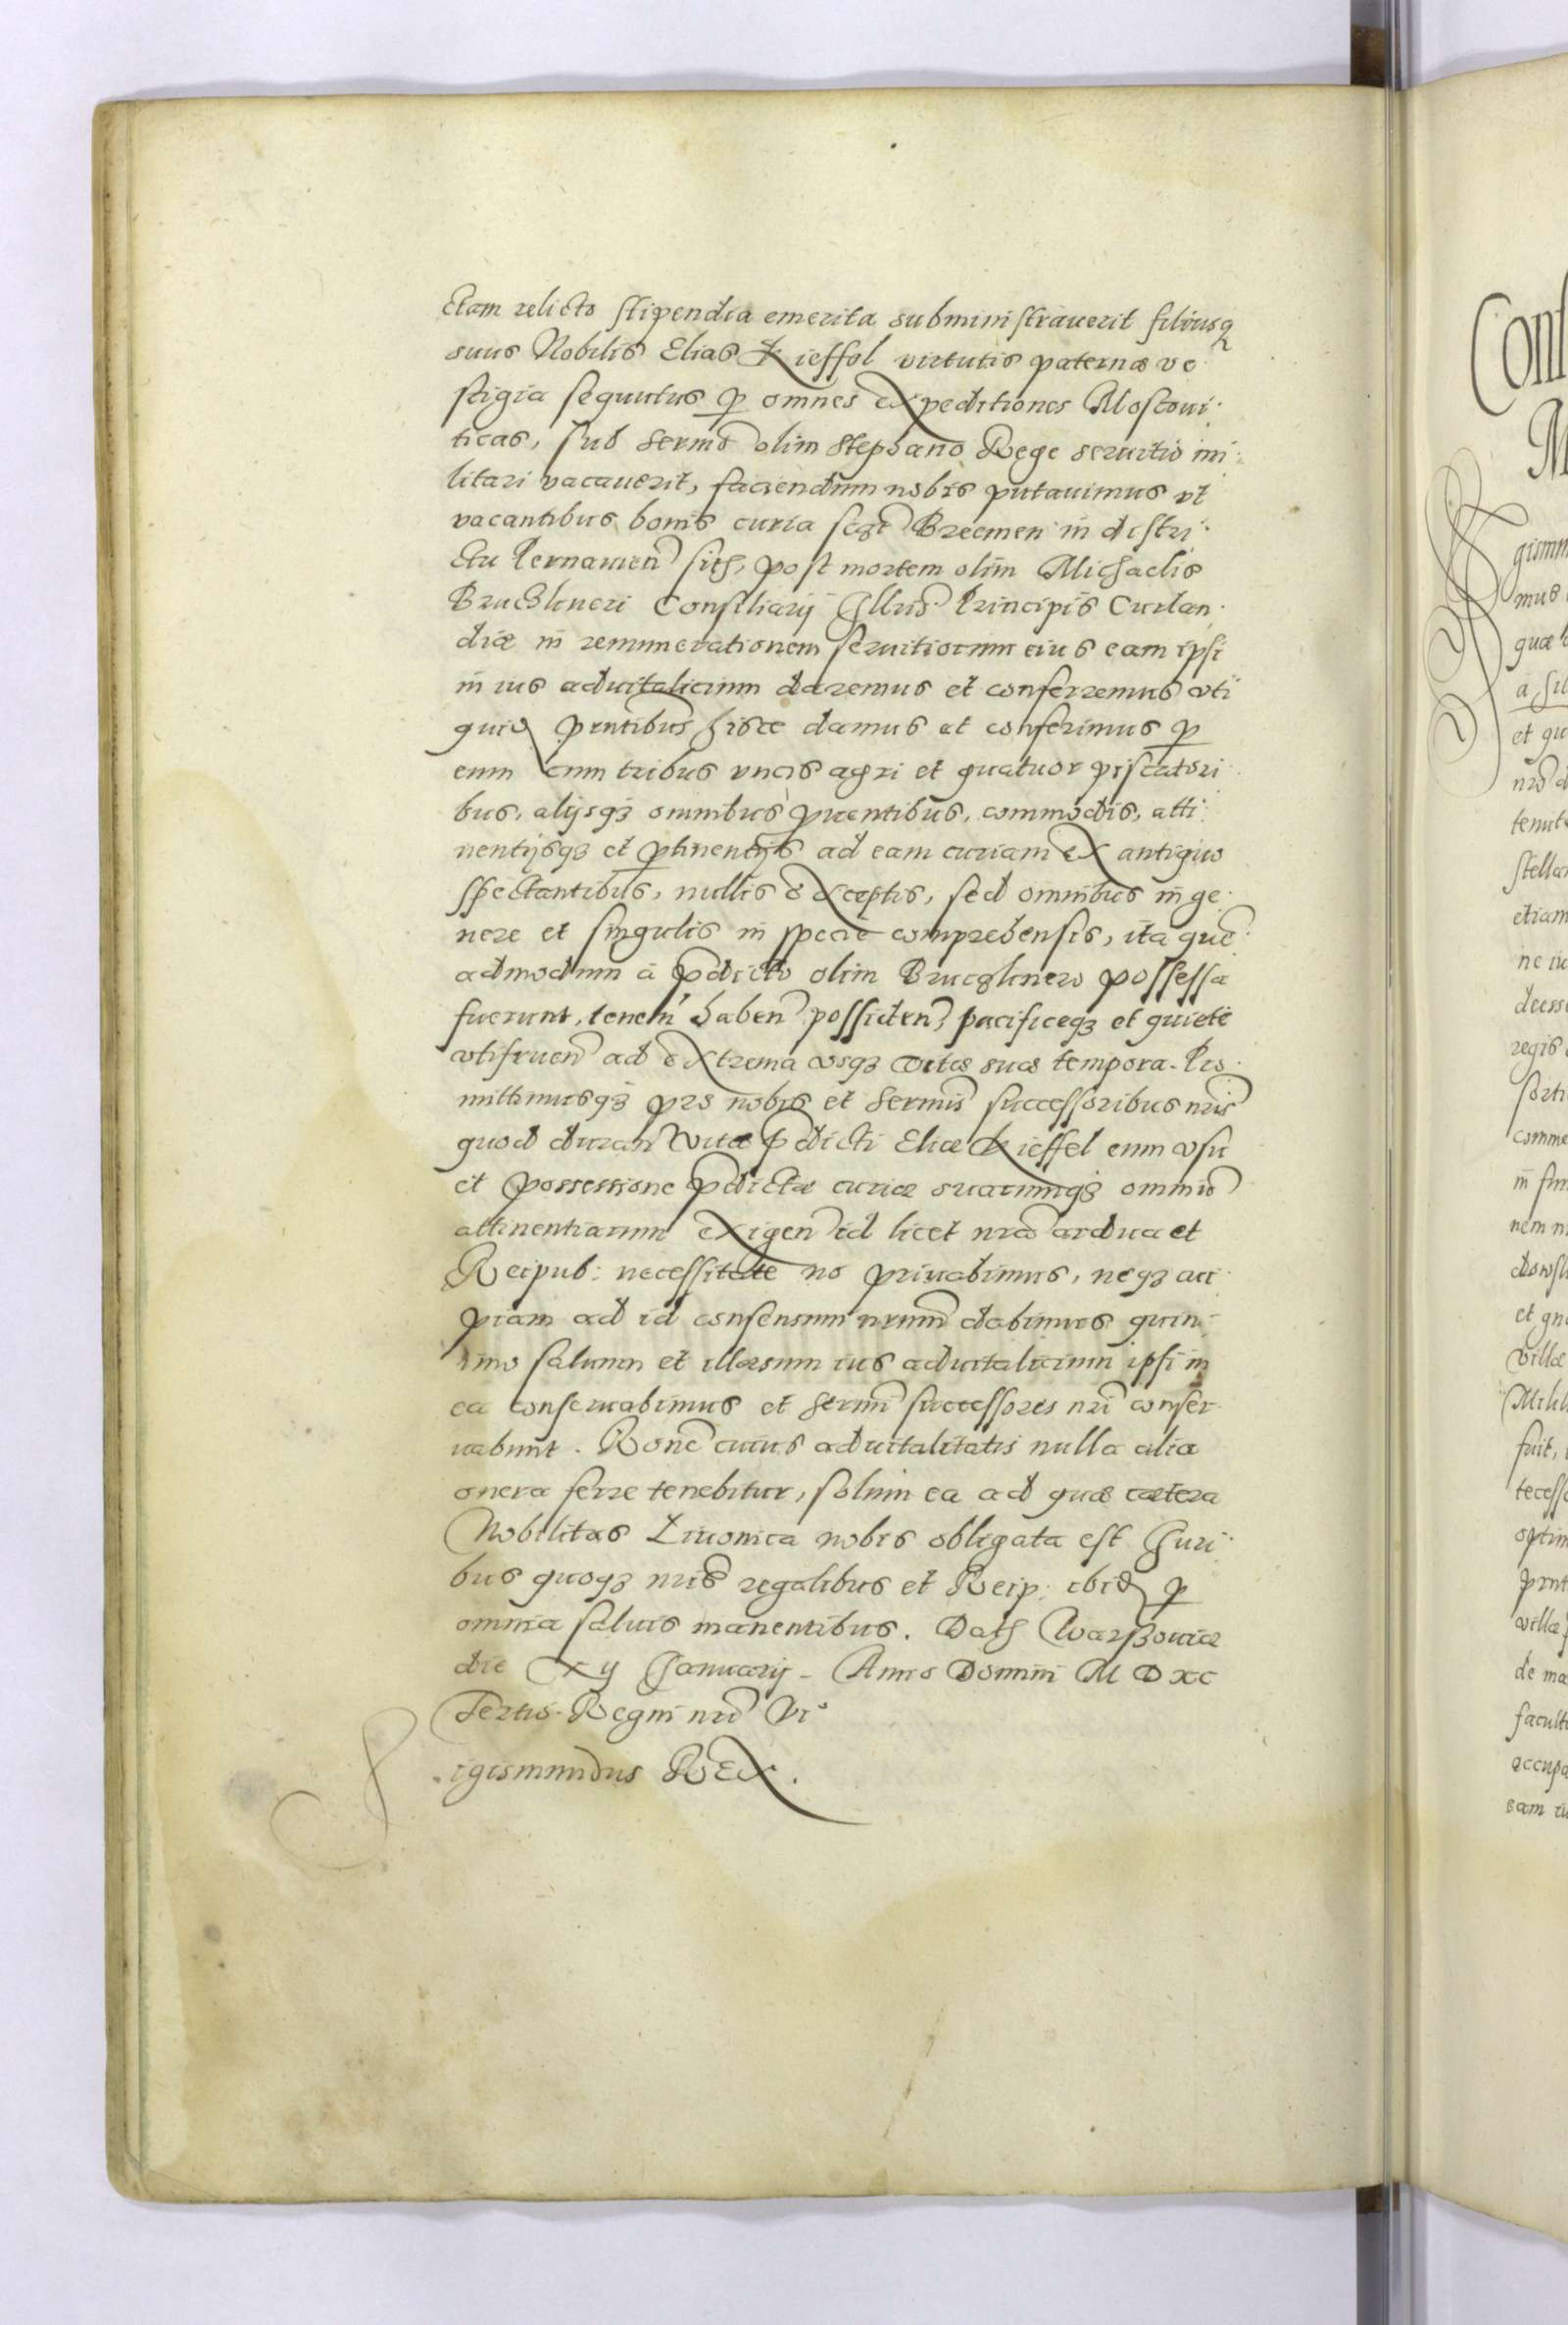 ctam relicto stipendia emerita subministrauerit filiusq
suus Nobilis Elias Kieffel virtutis paternæ ve
stigia sequutus p omnes expeditiones Moscoui
ticas, sub Sermo olim Stephano Rege seruitio mi
litari vacauerit, faciendum nobis putauimus vt
vacantibus bonis curia Breemen in distri
ctu Pernauien sith, post mortem olim Michaelis
Bruchneri Consiliarij Illris Principis Curlan
diæ in remunerationem seruitiorum eius eam ipsi
in ius aduitalicium daremus et conferremus vti
quid pntibus hisce damus et conferimus p
eum cum tribus vncis agri et quatuor piscatori
bus, alijsq3 omnibus puentibus, commodis, atti
nentijsq3 et ptinentijs ad eam curiam ex antiquo
spectantibus, nullis exceptis, sed omnibus in ge
nere et singulis in specie comprehensis, ita que
admodum a pdicto olim Bruchnero possessa
fuerunt, tenen haben possiden, pacificeq3 et quiete
vtifruen ad extrema vsq3 vitæ suæ tempora. Pro
mittimusq3 pro nobis et Sermis successoribus nris
quod duran vita pdicti Eliæ Kieffel eum vsu
et possessione pdictæ curiæ suarumq3 omnium
attinentiarum exigen id licet nra ardua et
Reipub: necessitate no priuabimus, neq3 ali
quam ad id consensum nrum dabimus quin
imo saluum et illæsum ius aduitalicium ipsi in
ea conseruabimus et Sermi successores nri conser
uabunt. Rone cuius aduitalitatis nulla alia
onera ferre tenebitur, solum ea ad quæ cætera
Nobilitas Liuonica nobis obligata est Juri
bus quoq3 nris regalibus et Reip: ibid p
omnia saluis manentibus. Dath Warssouiæ
die xij Januarij Anno Domini M D XC
Tertio. Regni nri Vi°
Sigismundus REX.